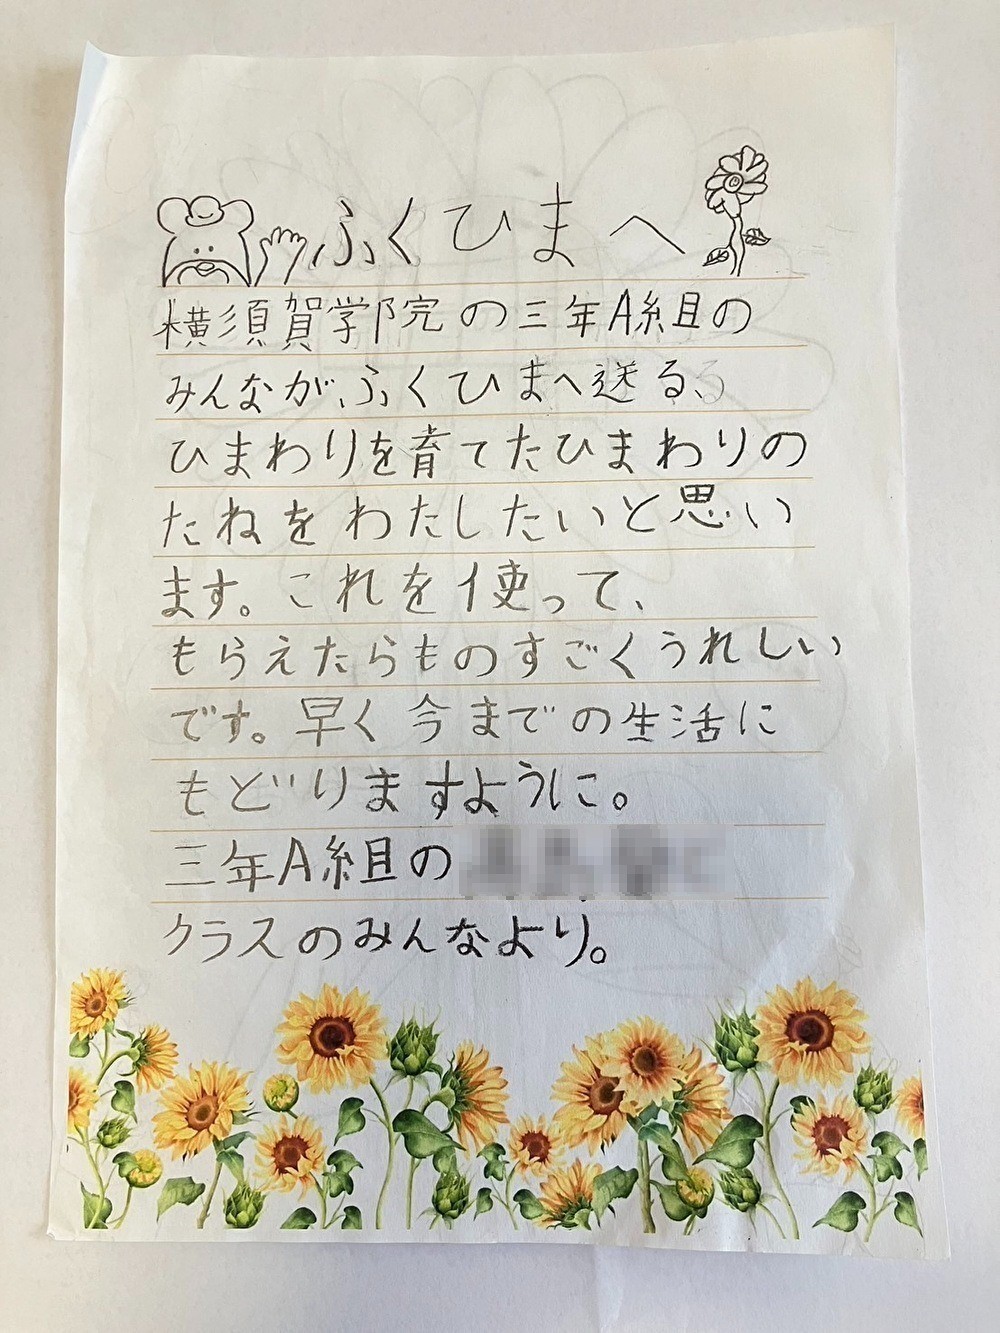 ふくひまへ
横須賀学院の三年A組の
みんなが、ふくひまへ送る、
ひまわりを育てたひまわりの
たねをわたしたいと思い
ます。これを使って、
もらえたらものすごくうれしい
です。早く今までの生活に
もどりますように。
三年A組の
クラスのみんなより。